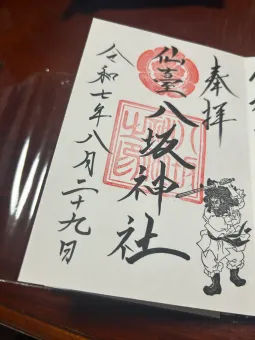 奉拝
仙臺八坂神社
令和七年八月二十九日